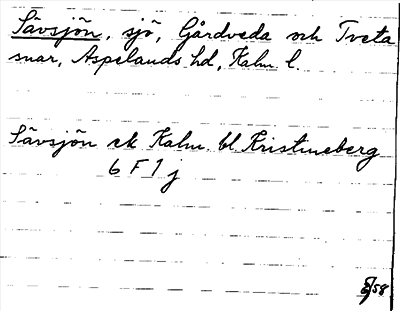 Sävsjön, sjö, Gårdveda och Tveta
snar, Aspelands hd, Kalm. l.
Sävsjön ek Kalm. bl Kristineberg
6 F 1 j
/58